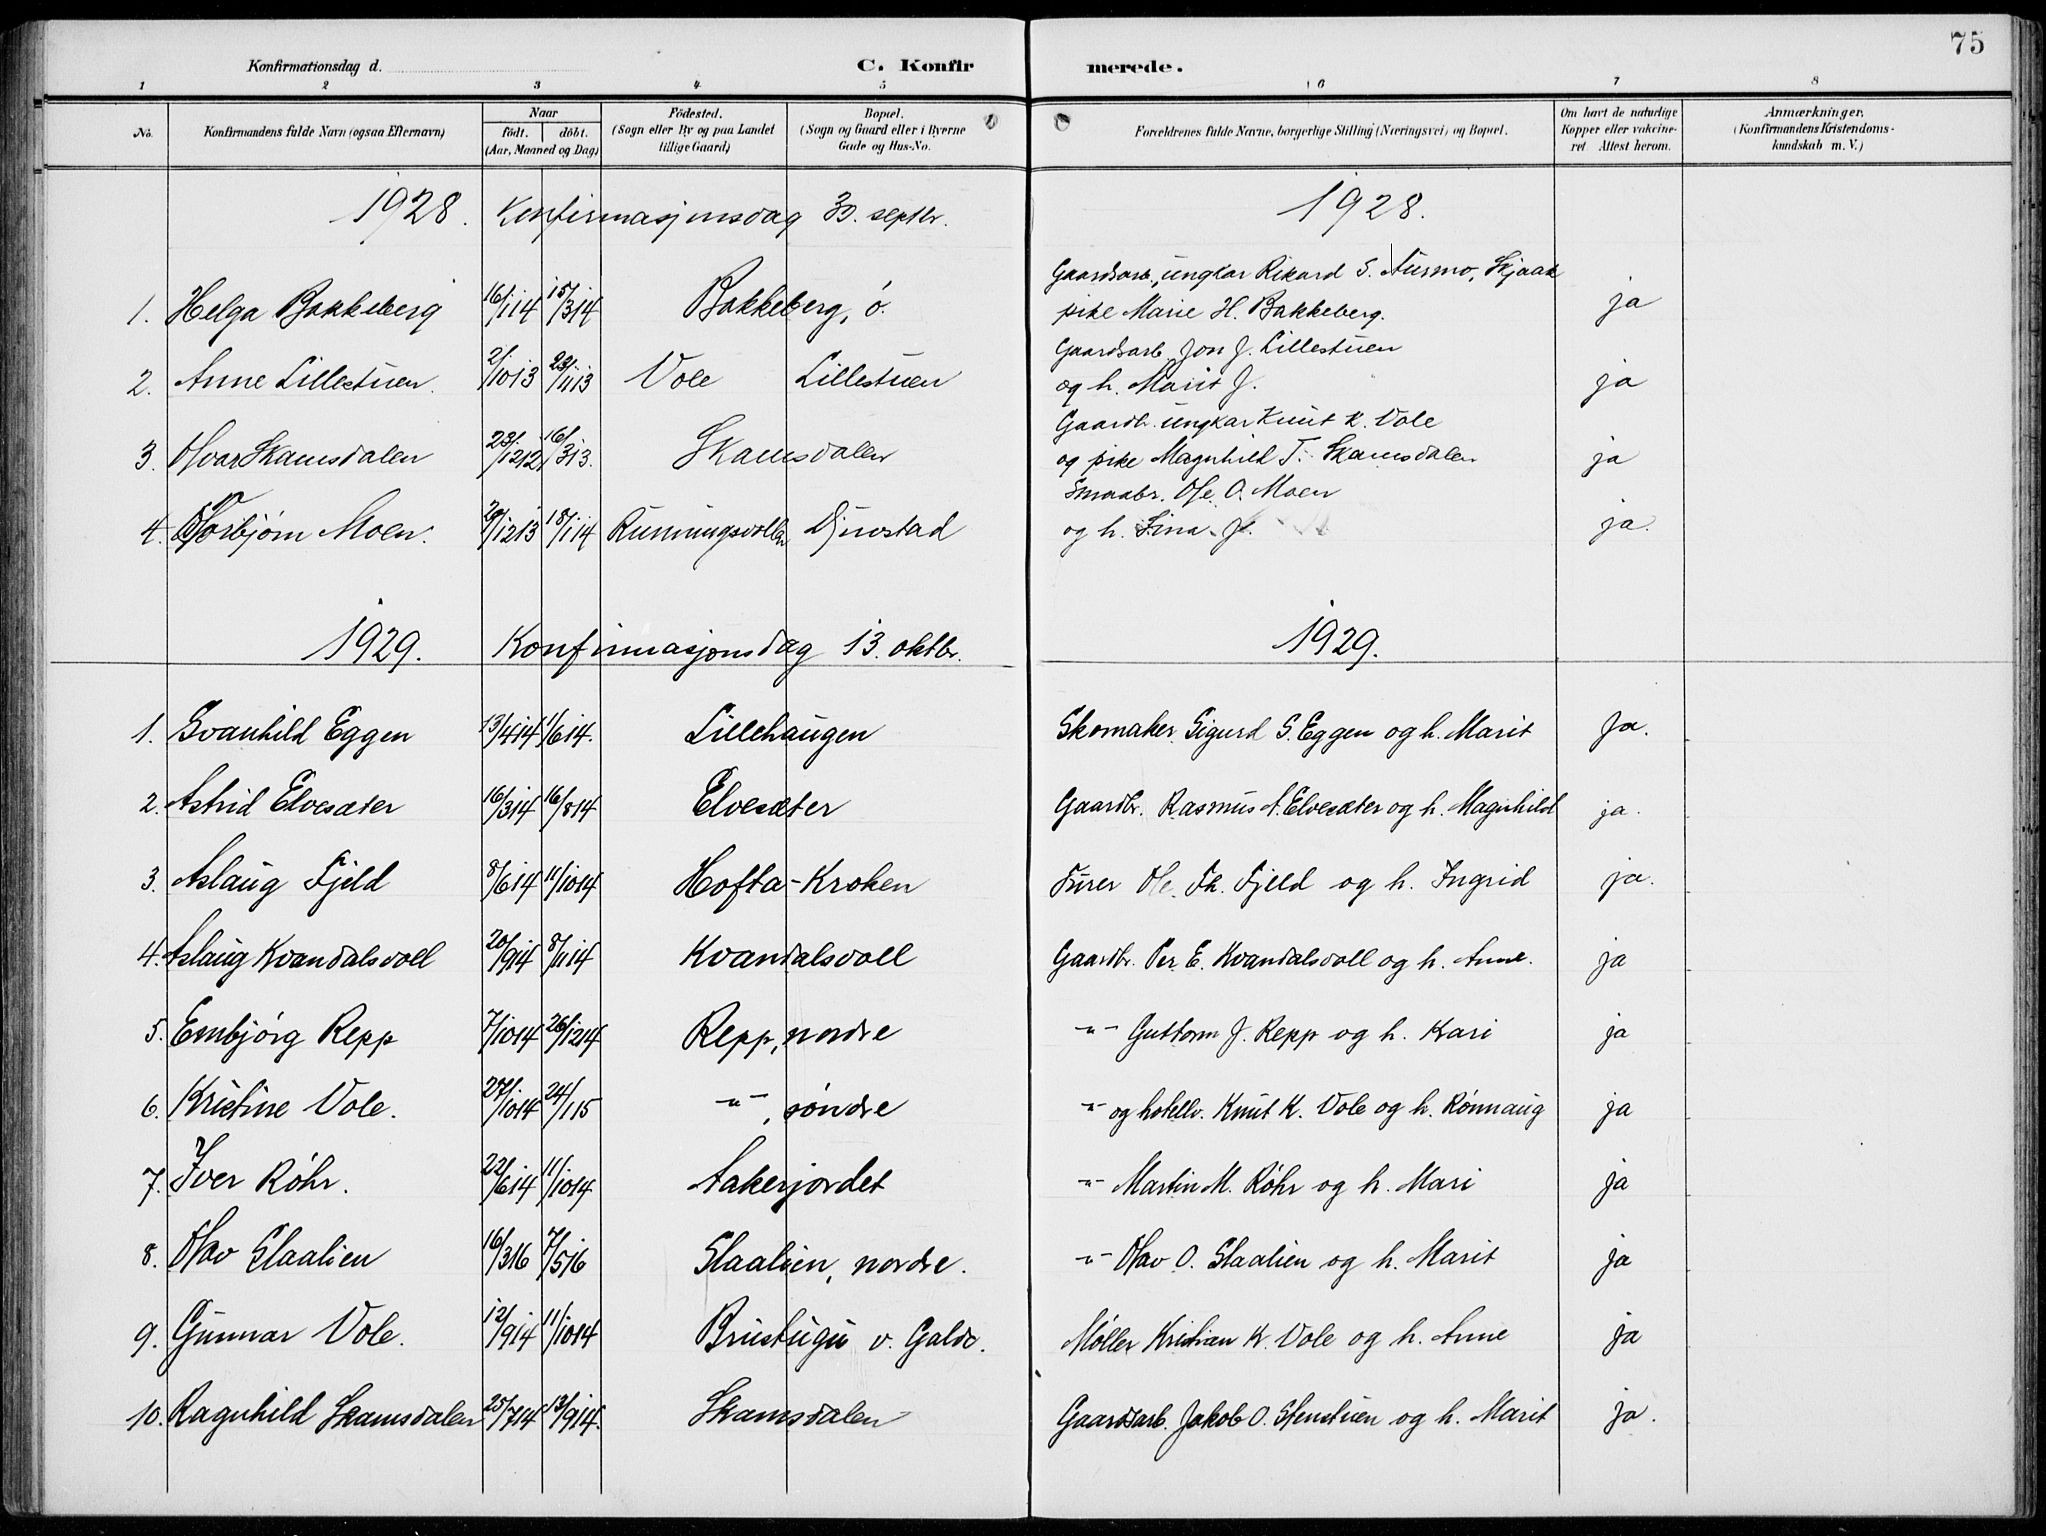 75
Konfirmationsdag d. C. Konfirmerede.
1 2 3 4 5 6 7 8
No. Konfirmandens fulde Navn (ogsaa Efternavn) Naar født. døbt. (Aar, Maaned og Dag) Födested. (Sogn eller By og paa Landet tillige Gaard) Bopæl. (Sogn og Gaard eller i Byerne Gade og Hus-No. Forældrenes fulde Navne, borgerlige Stilling (Næringsvei) og Bopæl. Om havt de naturlige Kopper eller vakcineret Attest herom. Anmærkninger. (Konfirmandens Kristendomskundskab m. V.)
1928. Konfirmasjonsdag 30. septbr. 1928.
Gaardsarb., ungkar Rikard S. Aurmo, Skjaak
1. Helga Bakkeberg 16/1 14 15/3 14 Bakkeberg, ø. pike Marie H. Bakkeberg. ja
Gaardsarb. Jon J. Lillestuen
2. Anne Lillestuen. 2/10 13 23/11 13 Vole Lillestuen og h. Marit J. ja
Gaardbr. ungkar Knut K. Vole
3. Ivar Skamsdalen 23/12 12 16/3 13. Skamsdalen og pike Magnhild T. Skamsdalen ja
Smaabr. Ole O. Moen
4. Torbjørn Moen. 29/12 13 18/1 14 Runningsvollen Djuvstad og h. Lina J. ja.
1929. Konfirmasjonsdag 13. oktbr. 1929.
1. Svanhild Eggen 13/4 14 1/6 14. Lillehaugen Skomaker Sigurd S. Eggen og h. Marit Ja.
2. Astrid Elvesæter 16/3 14 16/8 14 Elvesæter Gaardbr. Rasmus A. Elvesæter og h. Magnhild ja.
3. Aslaug Fjeld 8/6 14 11/10 14 Hofta-Kroken Furer Ole Th. Fjeld og h. Ingrid ja.
4. Aslaug Kvandalsvoll 20/9 14 8/11 14 Kvandalsvoll Gaardbr. Per E. Kvandalsvoll og h. Anne. ja
5. Embjørg Repp 7/10 14 26/12 14 Repp, nordre -"- Guttorm J. Repp og h. Kari ja
6. Kristine Vole. 27/10 14 24/1 15 -"-, søndre -"- og hotellv. Knut K. Vole og h. Rønnaug ja
7. Iver Røhr. 22/6 14 11/10 14 Aakerjordet -"- Martin M. Røhr og h. Mari ja
8. Olav Slaalien 16/3 16 7/5 16 Slaalien, nordre. -"- Olav O. Slaalien og h. Marit ja
9. Gunnar Vole. 12/9 14 11/10 14 Brustugu v. Galde. Møller Kristian K. Vole og h. Anne ja
10. Ragnhild Skamsdalen 25/7 14 13/9 14. Skamsdalen Gaardsarb. Jakob O. Stenstuen og h. Marit ja.